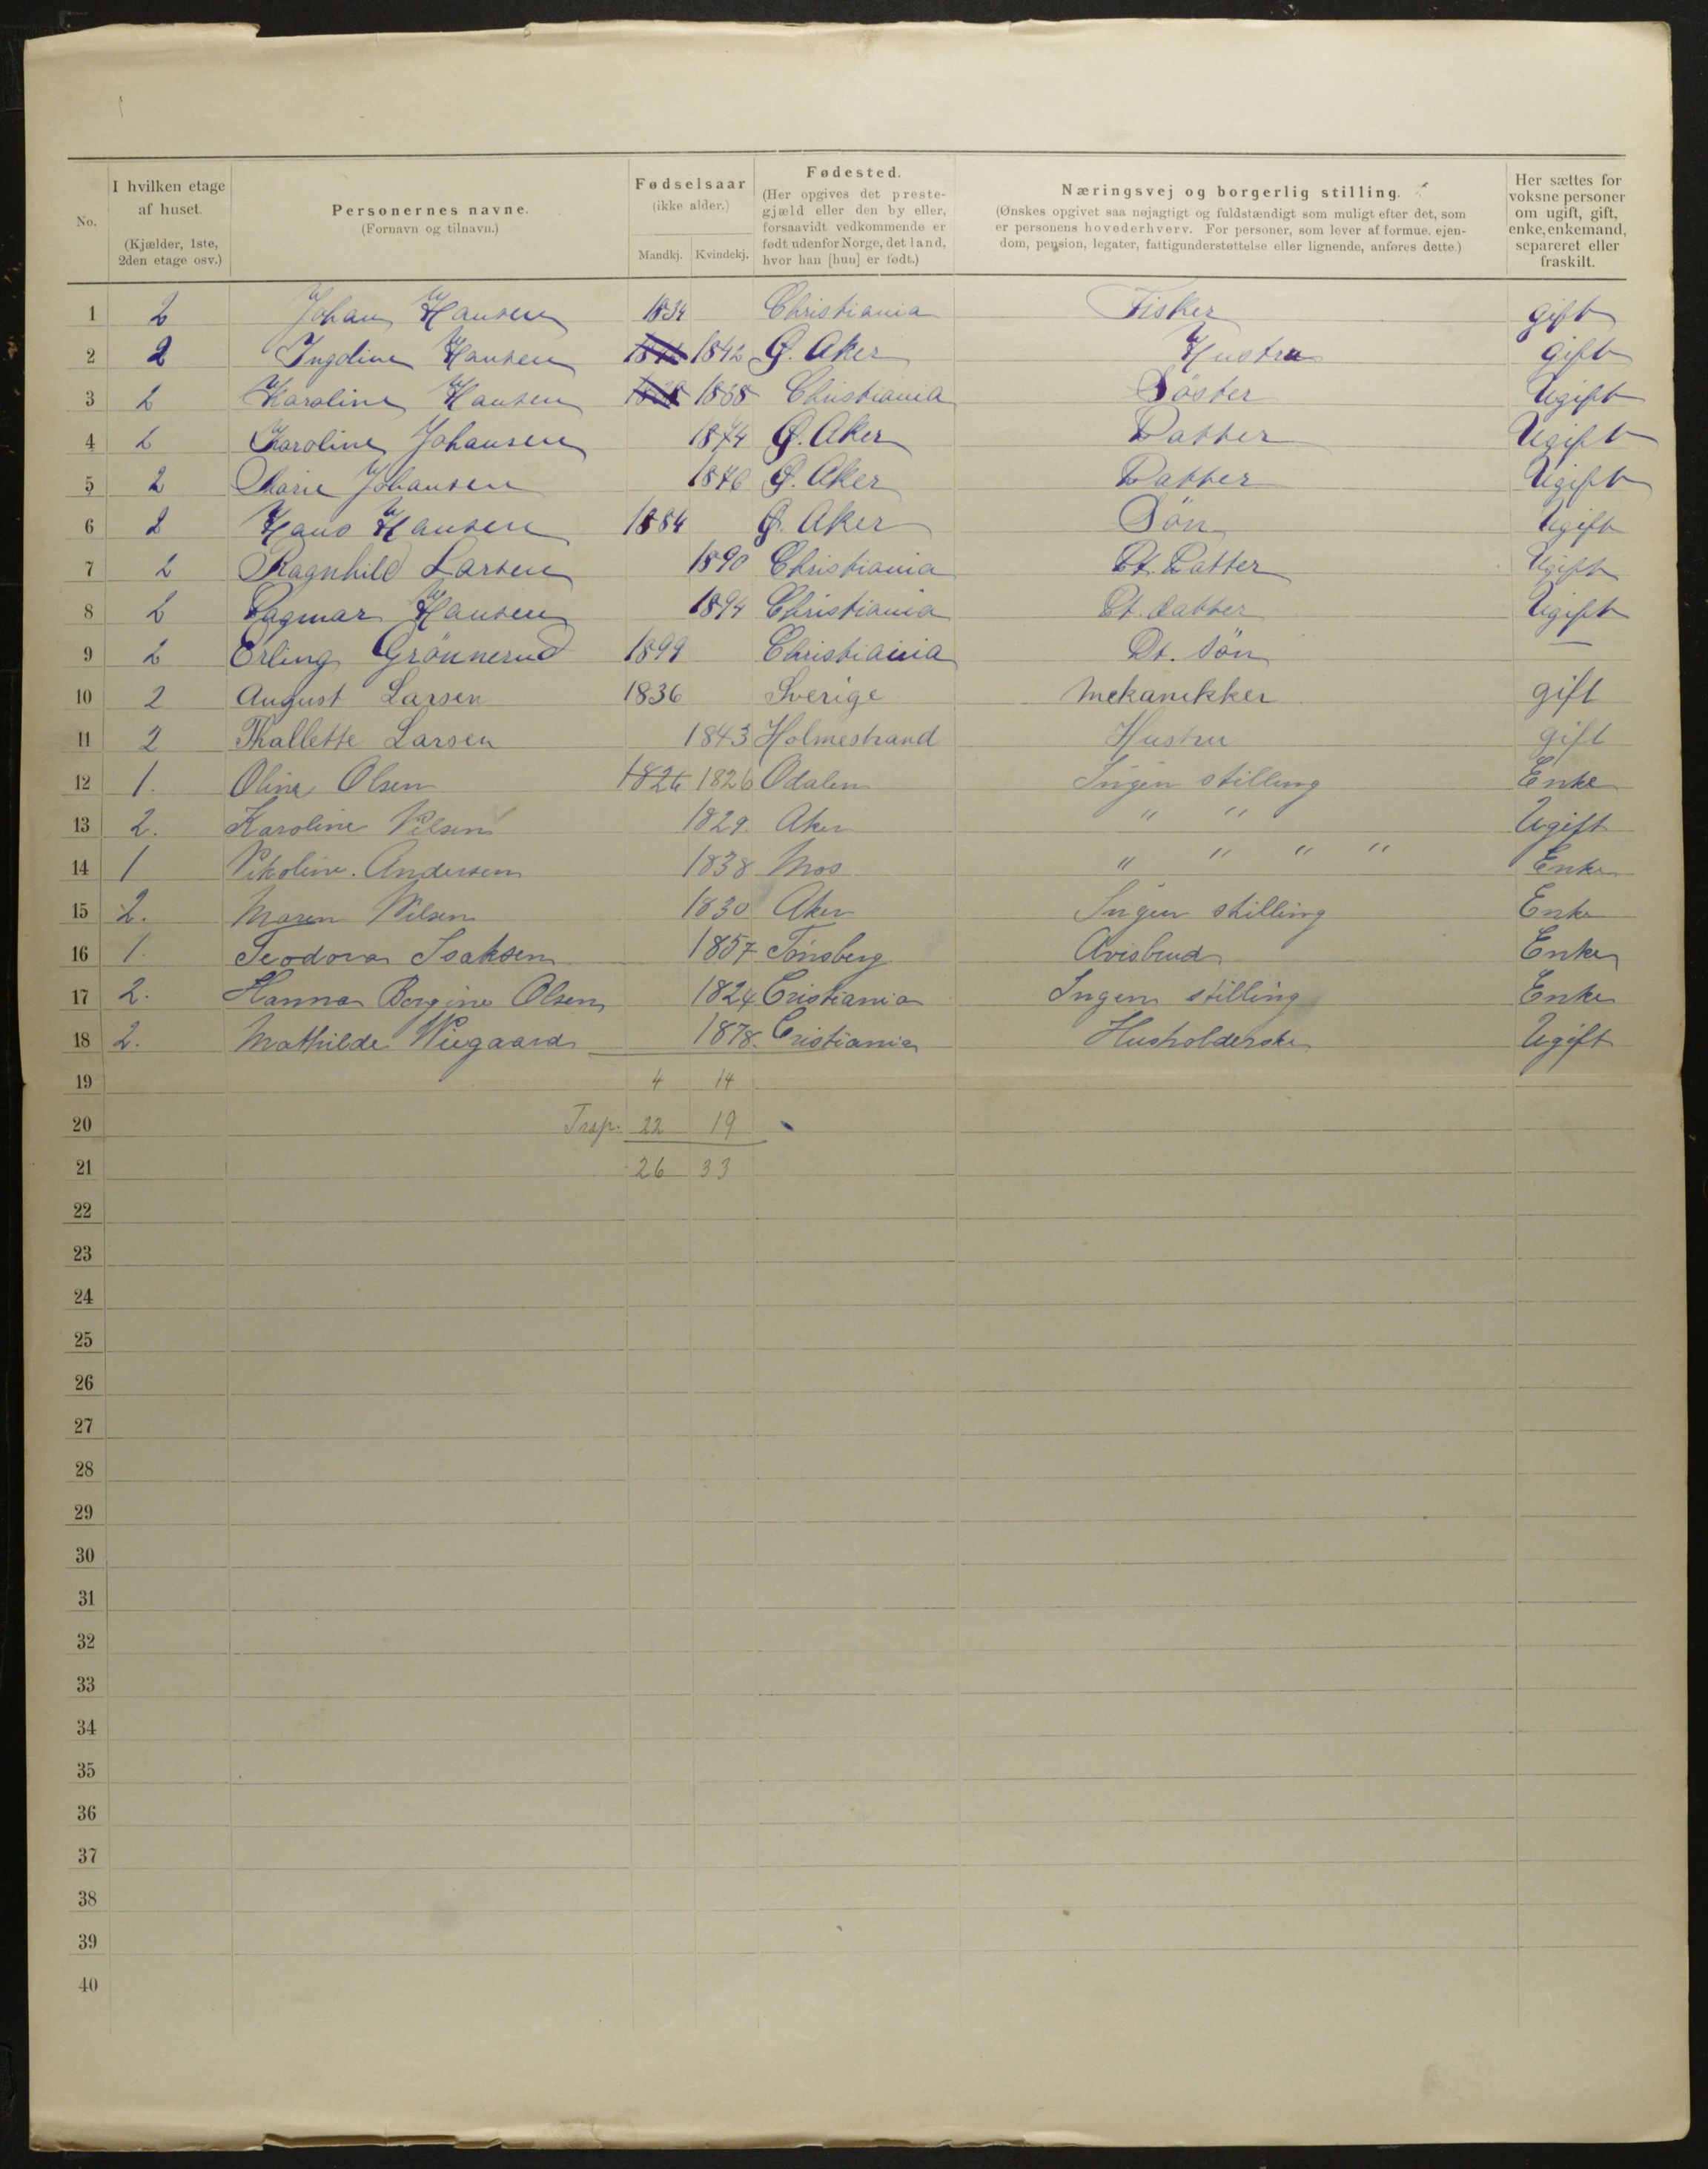 No. I hvilken etage af huset. (Kjælder, 1ste, 2den etage osv.) Personernes navne. (Fornavn og tilnavn.) Fødselsaar (ikke alder.) Mandkj. Kvindekj. Fødested. (Her opgives det prestegjæld eller den by eller, forsaavidt vedkommende er født udenfor Norge, det land, hvor han [hun] er født.) Næringsvej og borgerlig stilling. (Ønskes opgivet saa nøjagtigt og fuldstændigt som muligt efter det, som er personens hovederhverv. For personer, som lever af formue, ejendom, pension, legater, fattigunderstøttelse eller lignende, anføres dette.) Her sættes for voksne personer om ugift, gift, enke, enkemand, separeret eller fraskilt.
1 2 Johan Hansen 1834 Christiania Fisker gift
2 2 Ingoline Hansen 1842 Ø. Aker Hustru gift
3 2 Karoline Hansen 1838 Christiania Söster Ugift
4 2 Karoline Johansen 1874 Ø. Aker Datter Ugift
5 2 Marie Johansen 1876 Ø. Aker Datter Ugift
6 2 Hans Hansen 1884 Ø. Aker Sön Ugift
7 2 Ragnhild Larsen 1890 Christiania Dt. Datter Ugift
8 2 Dagmar Hansen 1894 Christiania Dt. datter Ugift
9 2 Erling Grönnerud 1899 Christiania Dt. Sön —
10 2 August Larsen 1836 Sverige Mekanikker gift
11 2 Thallette Larsen 1843 Holmestrand Hustru gift
12 1. Oline Olsen 1826 1826 Odalen Ingen stilling Enke
13 2. Karoline Nilsen 1829. Aker " " Ugift
14 1 Nikoline. Andersen 1838 Mos " " " " Enke
15 2. Maren Nilsen 1830 Aker Ingen stilling Enke
16 1. Teodora Isaksen 1857 Tönsberg Avisbud Enke
17 2. Hanna Bergine Olsen 1824 Cristiania Ingen stilling Enke
18 2. Mathilde Wiegaard 1878. Cristiania Husholderske Ugift
19 4 14
20 Trsp. 22 19
21 26 33
22
23
24
25
26
27
28
29
30
31
32
33
34
35
36
37
38
39
40